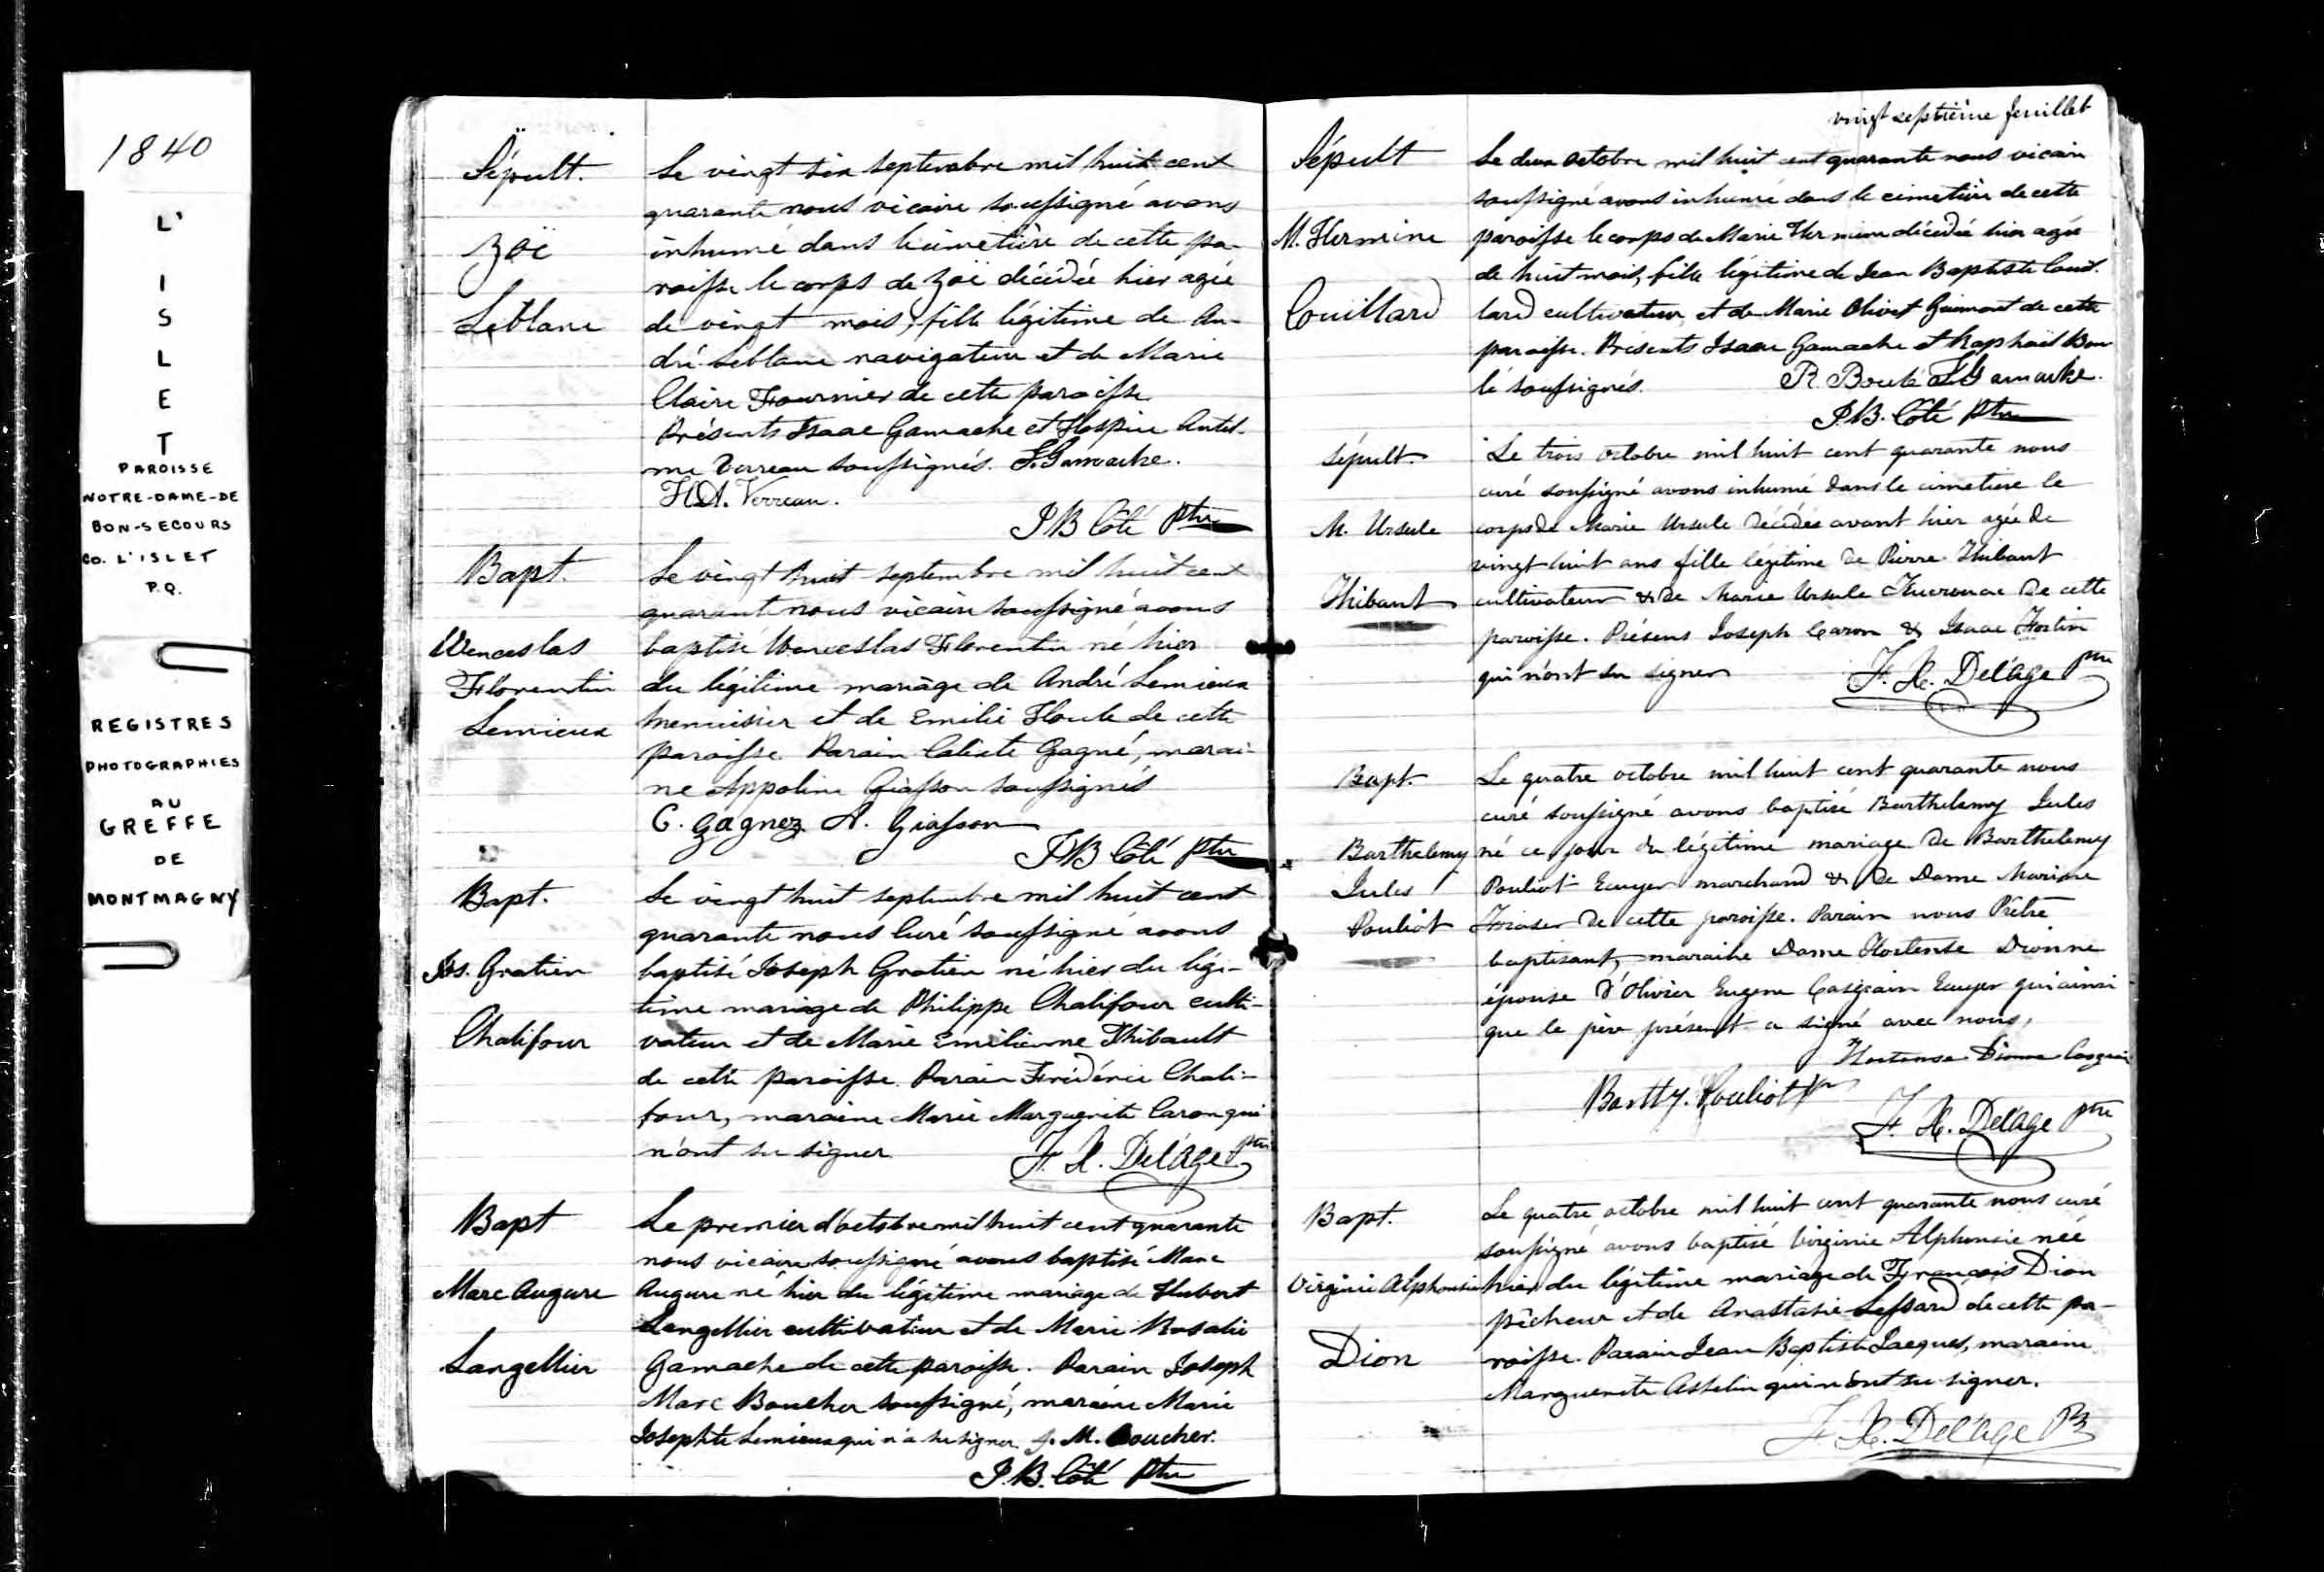 1840
L'
I
S
L
E
T
PAROISSE
NOTRE-DAME-DE
BON-SECOURS
CO. L'ISLET
P.Q.
REGISTRES
PHOTOGRAPHIES
AU
GREFFE
DE
MONTMAGNY
Sépult.
Zoë
Leblanc
Le vingt six septembre mil huit cent
quarante nous vicaire soussigné avons
inhumé dans le cimetière de cette pa-
roisse le corps de Zoë décédée hier agée
de vingt mois, fille légitime de An-
dré Leblanc navigateur et de Marie
Claire Fournier de cette paroisse
Présents Isaac Gamache et Hospice Antel-
me Verreau soussignés. I. Gamache.
H.A. Verreau.
J B Côté Ptre
Bapt.
Wenceslas
Florentin
Lemieux
Le vingt huit septembre mil huit cent
quarante nous vicaire soussigné avons
baptisé Wenceslas Florentin né hier
du légitime mariage de André Lemieux
menuisier et de Emilie Houle de cette
paroisse. Parain Calixte Gagné, marai-
ne Appoline Giasson soussignés
C. Gagnez A. Giasson
J B Côté Ptre
Bapt.
Jos. Gratien
Chalifour
Le vingt huit septembre mil huit cent
quarante nous Curé soussigné avons
baptisé Joseph Gratien né hier du légi-
time mariage de Philippe Chalifour culti-
vateur et de Marie Emilienne Thibault
de cette paroisse. Parain Frédéric Chali-
four, maraine Marie Marguerite Caron qui
n'ont su signer
F. X. Delâge Ptre
Bapt
Marc Augure
Langellier
Le premier d'octobre mil huit cent quarante
nous vicaire soussigné avons baptisé Marc
Augure né hier du légitime mariage de Hubert
Langellier cultivateur et de Marie Rosalie
Gamache de cette paroisse. Parain Joseph
Marc Boucher soussigné, maraine Marie
Josephte Lemieux qui n'a su signer J. M. Boucher.
J. B. Côté Ptre
vingt septième feuillet
Sépult
M. Hermine
Couillard
Le deux octobre mil huit cent quarante nous vicaire
soussigné avons inhumé dans le cimetière de cette
paroisse le corps de Marie Hermine décédée hier agée
de huit mois, fille légitime de Jean Baptiste Couil-
lard cultivateur et de Marie Olive Guimont de cette
paroisse. Présents Isaac Gamache et Raphaël Bou-
lé soussignés. R. Boulé I. Gamache.
J.B. Côté Ptre
Sépult.
M. Ursule
Thibaut
Le trois octobre mil huit cent quarante nous
curé soussigné avons inhumé dans le cimetière le
corps de Marie Ursule décédée avant hier agée de
vingt huit ans fille légitime de Pierre Thibaut
cultivateur & de Marie Ursule de cette
paroisse. Présens Joseph Caron & Isaac Fortin
qui n'ont su signer
F. X. Delâge Ptre
Bapt.
Barthelemy
Jules
Pouliot
Le quatre octobre mil huit cent quarante nous
curé soussigné avons baptisé Barthelemy Jules
né ce jour du légitime mariage de Barthelemy
Pouliot Ecuyer marchand & de Dame Marine
Fraser de cette paroisse. Parain nous Prêtre
baptisant, maraine Dame Hortense Dionne
épouse d'Olivier Eugene Casgrain Ecuyer qui ainsi
que le père présent a signé avec nous,
Hortense Dionne Casgrain
Barthy. Pouliot
F. X. Delâge Ptre
Bapt.
Virginie Alphonsine
Dion
Le quatre octobre mil huit cent quarante nous curé
soussigné avons baptisé Virginie Alphonsie née
hier du légitime mariage de François Dion
pêcheur et de Anastasie Lessard de cette pa-
roisse. Parain Jean Baptiste Jacques, maraine
Marguerite Asselin qui n'ont su signer.
F. X. Delâge Ptre